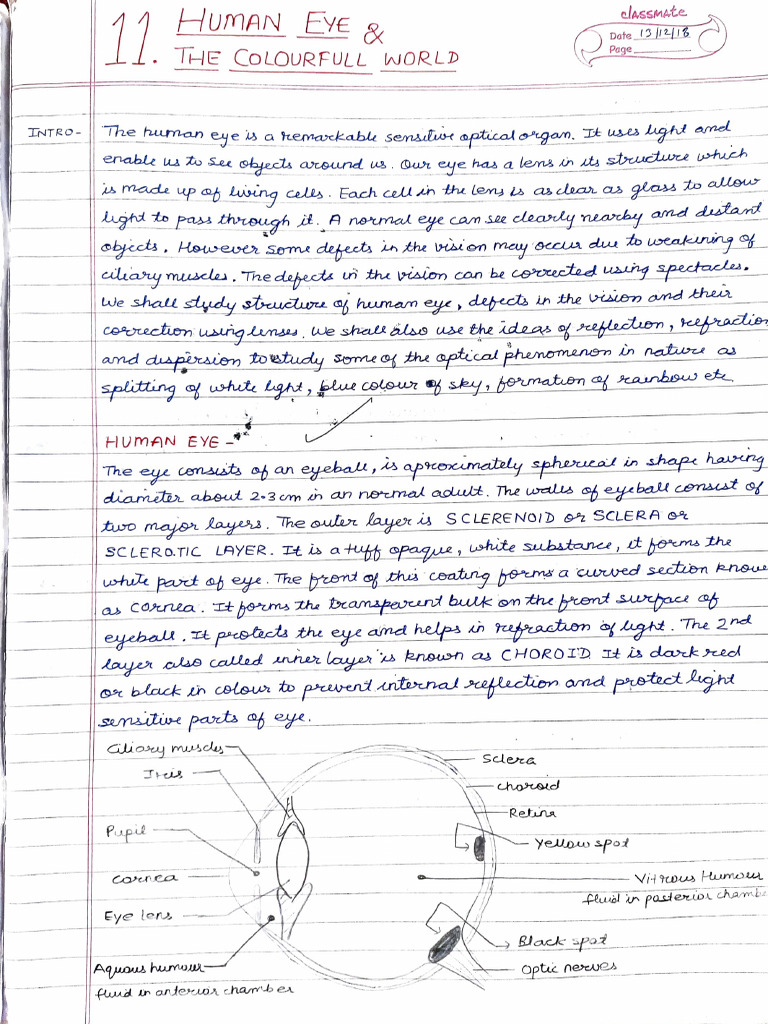 11. HUMAN EYE &
THE COLOURFULL WORLD
classmate
Date 13/12/18
Page
INTRO- The human eye is a remarkable sensitive optical organ. It uses light and
enable us to see objects around us. Our eye has a lens in its structure which
is made up of living cells. Each cell in the lens is as clear as glass to allow
light to pass through it. A normal eye can see clearly nearby and distant
objects. However some defects in the vision may occur due to weakining of
ciliary muscles. The defects in the vision can be corrected using spectacles.
We shall study structure of human eye, defects in the vision and their
correction using lenses. We shall also use the ideas of reflection, refraction
and dispersion to study some of the optical phenomenon in nature as
splitting of white light, blue colour of sky, formation of rainbow etc
HUMAN EYE -
The eye consists of an eyeball, is aproximately spherical in shape having
diameter about 2.3 cm in an normal adult. The walls of eyeball consist of
two major layers. The outer layer is SCLERENOID or SCLERA or
SCLEROTIC LAYER. It is a tuff opaque, white substance, it forms the
white part of eye. The front of this coating forms a curved section know
as cornea. It forms the transparent bulk on the front surface of
eyeball. It protects the eye and helps in refraction of light. The 2nd
layer also called inner layer is known as CHOROID. It is dark red
or black in colour to prevent internal reflection and protect light
sensitive parts of eye.
Ciliary muscles
Iris
Pupil
cornea
Eye lens
Aquous humour
fluid in anterior chamber
Sclera
choroid
Retina
Yellow spot
Vitrous Humour
fluid in posterior chambe
Black spot
Optic nerves